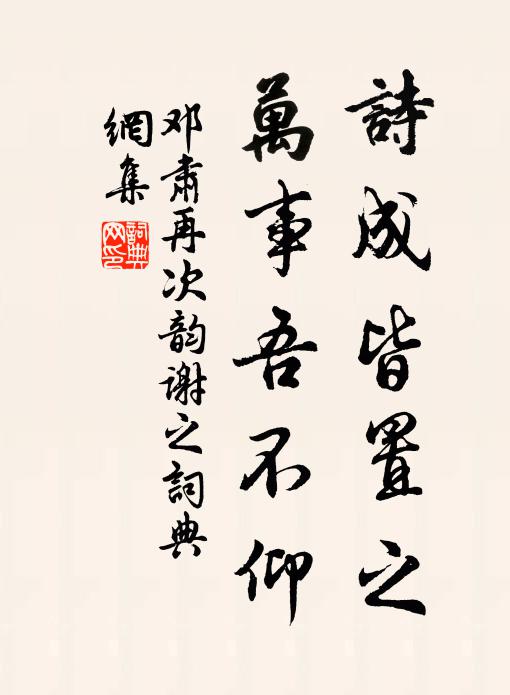 詩成皆置之
萬事吾不仰
邓肅再次韵谢之詞典
網集
詞典網印